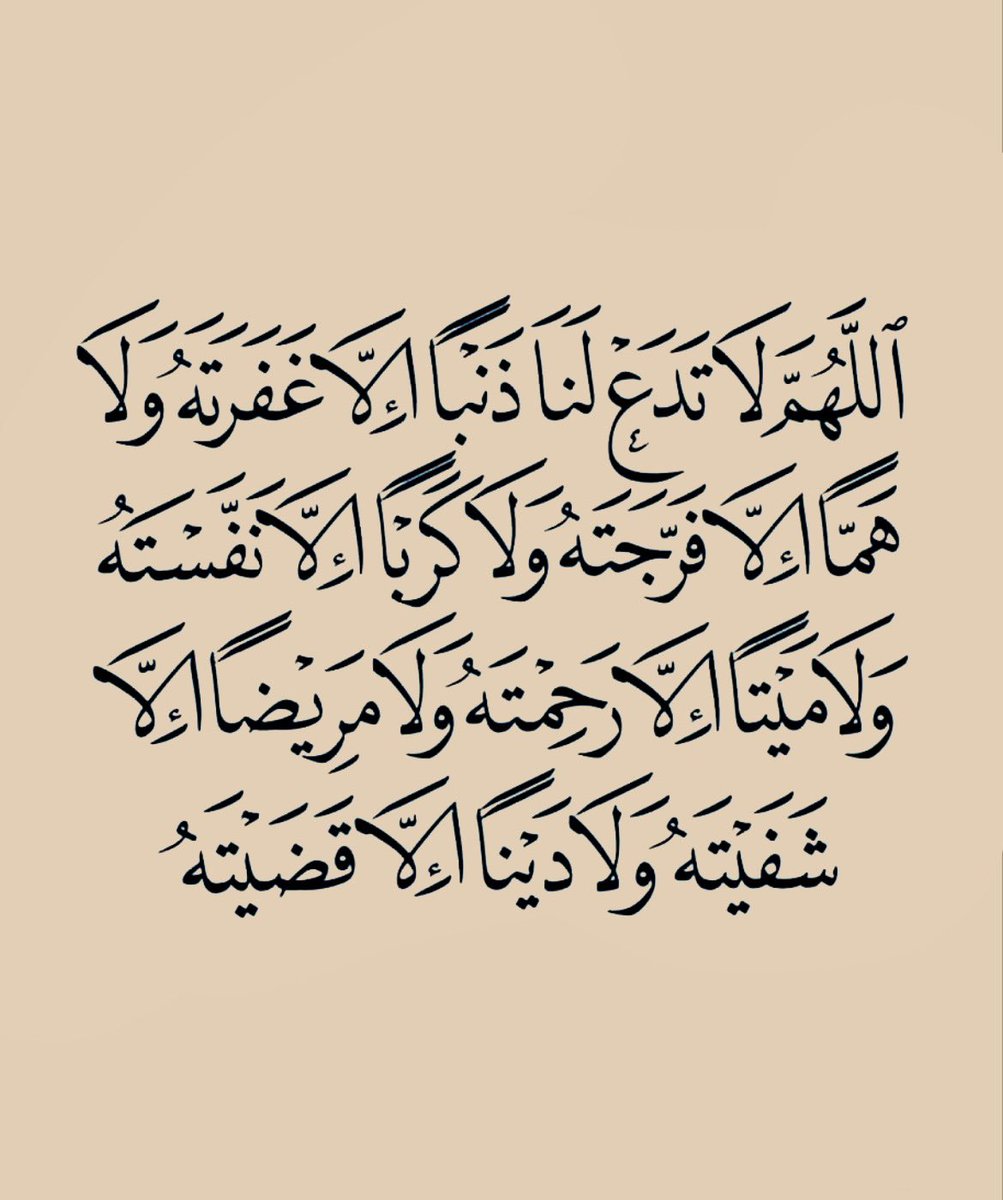 ٱللَّهُمَّ لَا تَدَعْ لَنَا ذَنْبًا إِلَّا غَفَرَتَهُ وَلَا
هَمًّا إِلَّا فَرَّجَتَهُ وَلَا كَرْبًا إِلَّا نَفَّسْتَهُ
وَلَا مَيْتًا إِلَّا رَحِمْتَهُ وَلَا مَرِيْضًا إِلَّا
شَفَيْتَهُ وَلَا دَيْنًا إِلَّا قَضَيْتَهُ